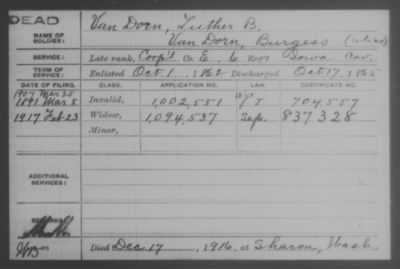 DEAD
NAME OF SOLDIER: Van Dorn, Luther B.
Van Dorn, Burgess (alias)
SERVICE: Late rank, Corp'l Co. E, 6 Reg't Iowa Cav.
TERM OF SERVICE: Enlisted Oct. 1, 1862 Discharged Oct. 17, 1865
DATE OF FILING. CLASS. APPLICATION NO. LAW. CERTIFICATE NO.
1907 Mar 25
1891 Mar 5 Invalid, 1,002,551 704557
1917 Feb 23 Widow, 1,094,537 Sep. 837328
Minor,
ADDITIONAL SERVICES:
Died Dec 17, 1916, at Sharon, Wash.